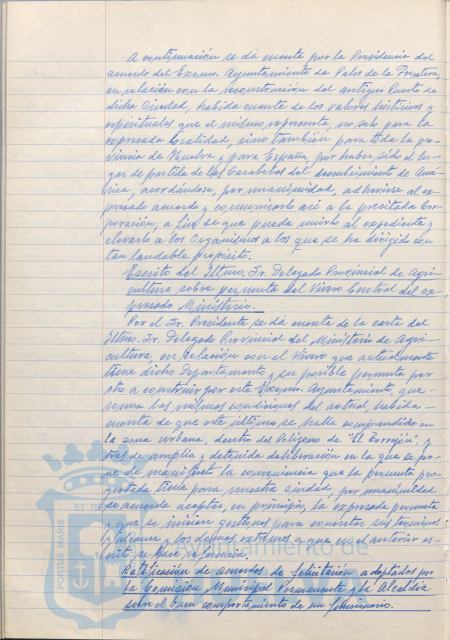 A continuación se da cuenta por la Presidencia del
acuerdo del Excmo. Ayuntamiento de Palos de la Frontera,
en relación con la reconstrucción del antiguo Puerto de
dicha Ciudad, habida cuenta de los valores históricos y
espirituales que el mismo representa, no solo para la
expresada localidad, sino también para toda la pro-
vincia de Huelva y para España, por haber sido el lu-
gar de partida de las Carabelas del descubrimiento de Amé-
rica, acordándose, por unanimidad, adherirse al ex-
presado acuerdo y comunicarlo así a la precitada Cor-
poración, a fin de que pueda unirlo al expediente y
elevarlo a los Organismos a los que se ha dirigido con
tan laudable propósito.
Escrito del Iltmo. Sr. Delegado Provincial de Agri-
cultura sobre permuta del Vivero Central del ex-
presado Ministerio.
Por el Sr. Presidente se da cuenta de la carta del
Iltmo. Sr. Delegado Provincial del Ministerio de Agri-
cultura, en relación con el Vivero que actualmente
tiene dicho Departamento y su posible permuta por
otro a construir por este Excmo. Ayuntamiento, que
reuna las mismas condiciones del actual, habida
cuenta de que este último se halla comprendido en
la zona urbana, dentro del Polígono de "El Torrejón", y
tras de amplia y detenida deliberación en la que se po-
ne de manifiesto la conveniencia que la permuta pro-
yectada tiene para nuestra ciudad, por unanimidad
se acuerda aceptar, en principio, la expresada permuta
y que se inicien gestiones para concretar sus términos
y alcance y los demás extremos a que en el anterior es-
crito se hace referencia.
Ratificación de acuerdos de felicitación adoptados por
la Comisión Municipal Permanente y la Alcaldía
sobre el buen comportamiento de un funcionario.
PORTUS MARIS
ET TE
Ayuntamiento de